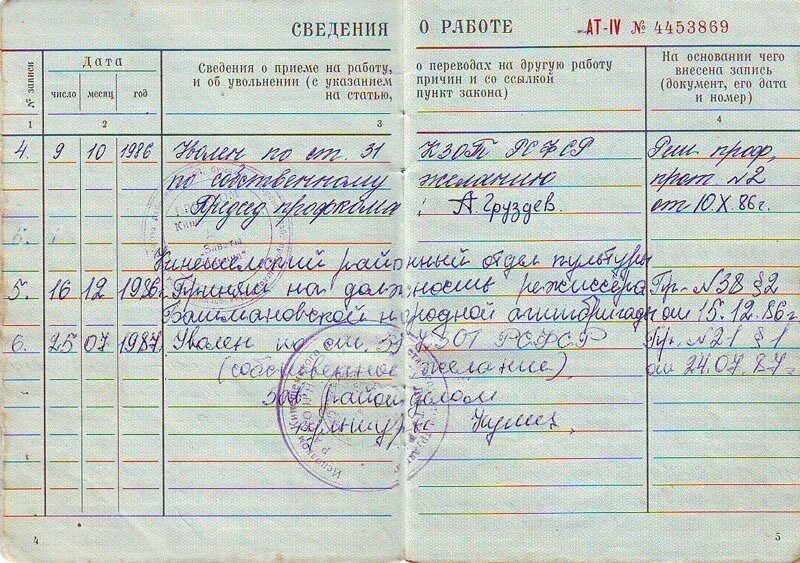 СВЕДЕНИЯ О РАБОТЕ АТ-IV № 4453869
№ записи
Дата
число месяц год
Сведения о приеме на работу, о переводах на другую работу
и об увольнении (с указанием причин и со ссылкой
на статью, пункт закона)
На основании чего
внесена запись
(документ, его дата
и номер)
1 2 3 4
4. 9 10 1986 Уволен по ст. 31 КЗОТ РСФСР Реш. проф,
по собственному желанию прот. №2
Председ. профкома А. Груздев. от 10.X.86г.
Кинешемский районный отдел культуры
5. 16 12 1986г. Принят на должность режиссёра Пр. №38 §2
Батмановской народной агитбригады от 15.12.86г
6. 25 07 1987. Уволен по ст. 31 КЗОТ РСФСР Пр. №21 §1
(собственное желание) от 24.07.87г
Зав. районделом
культуры
4
5